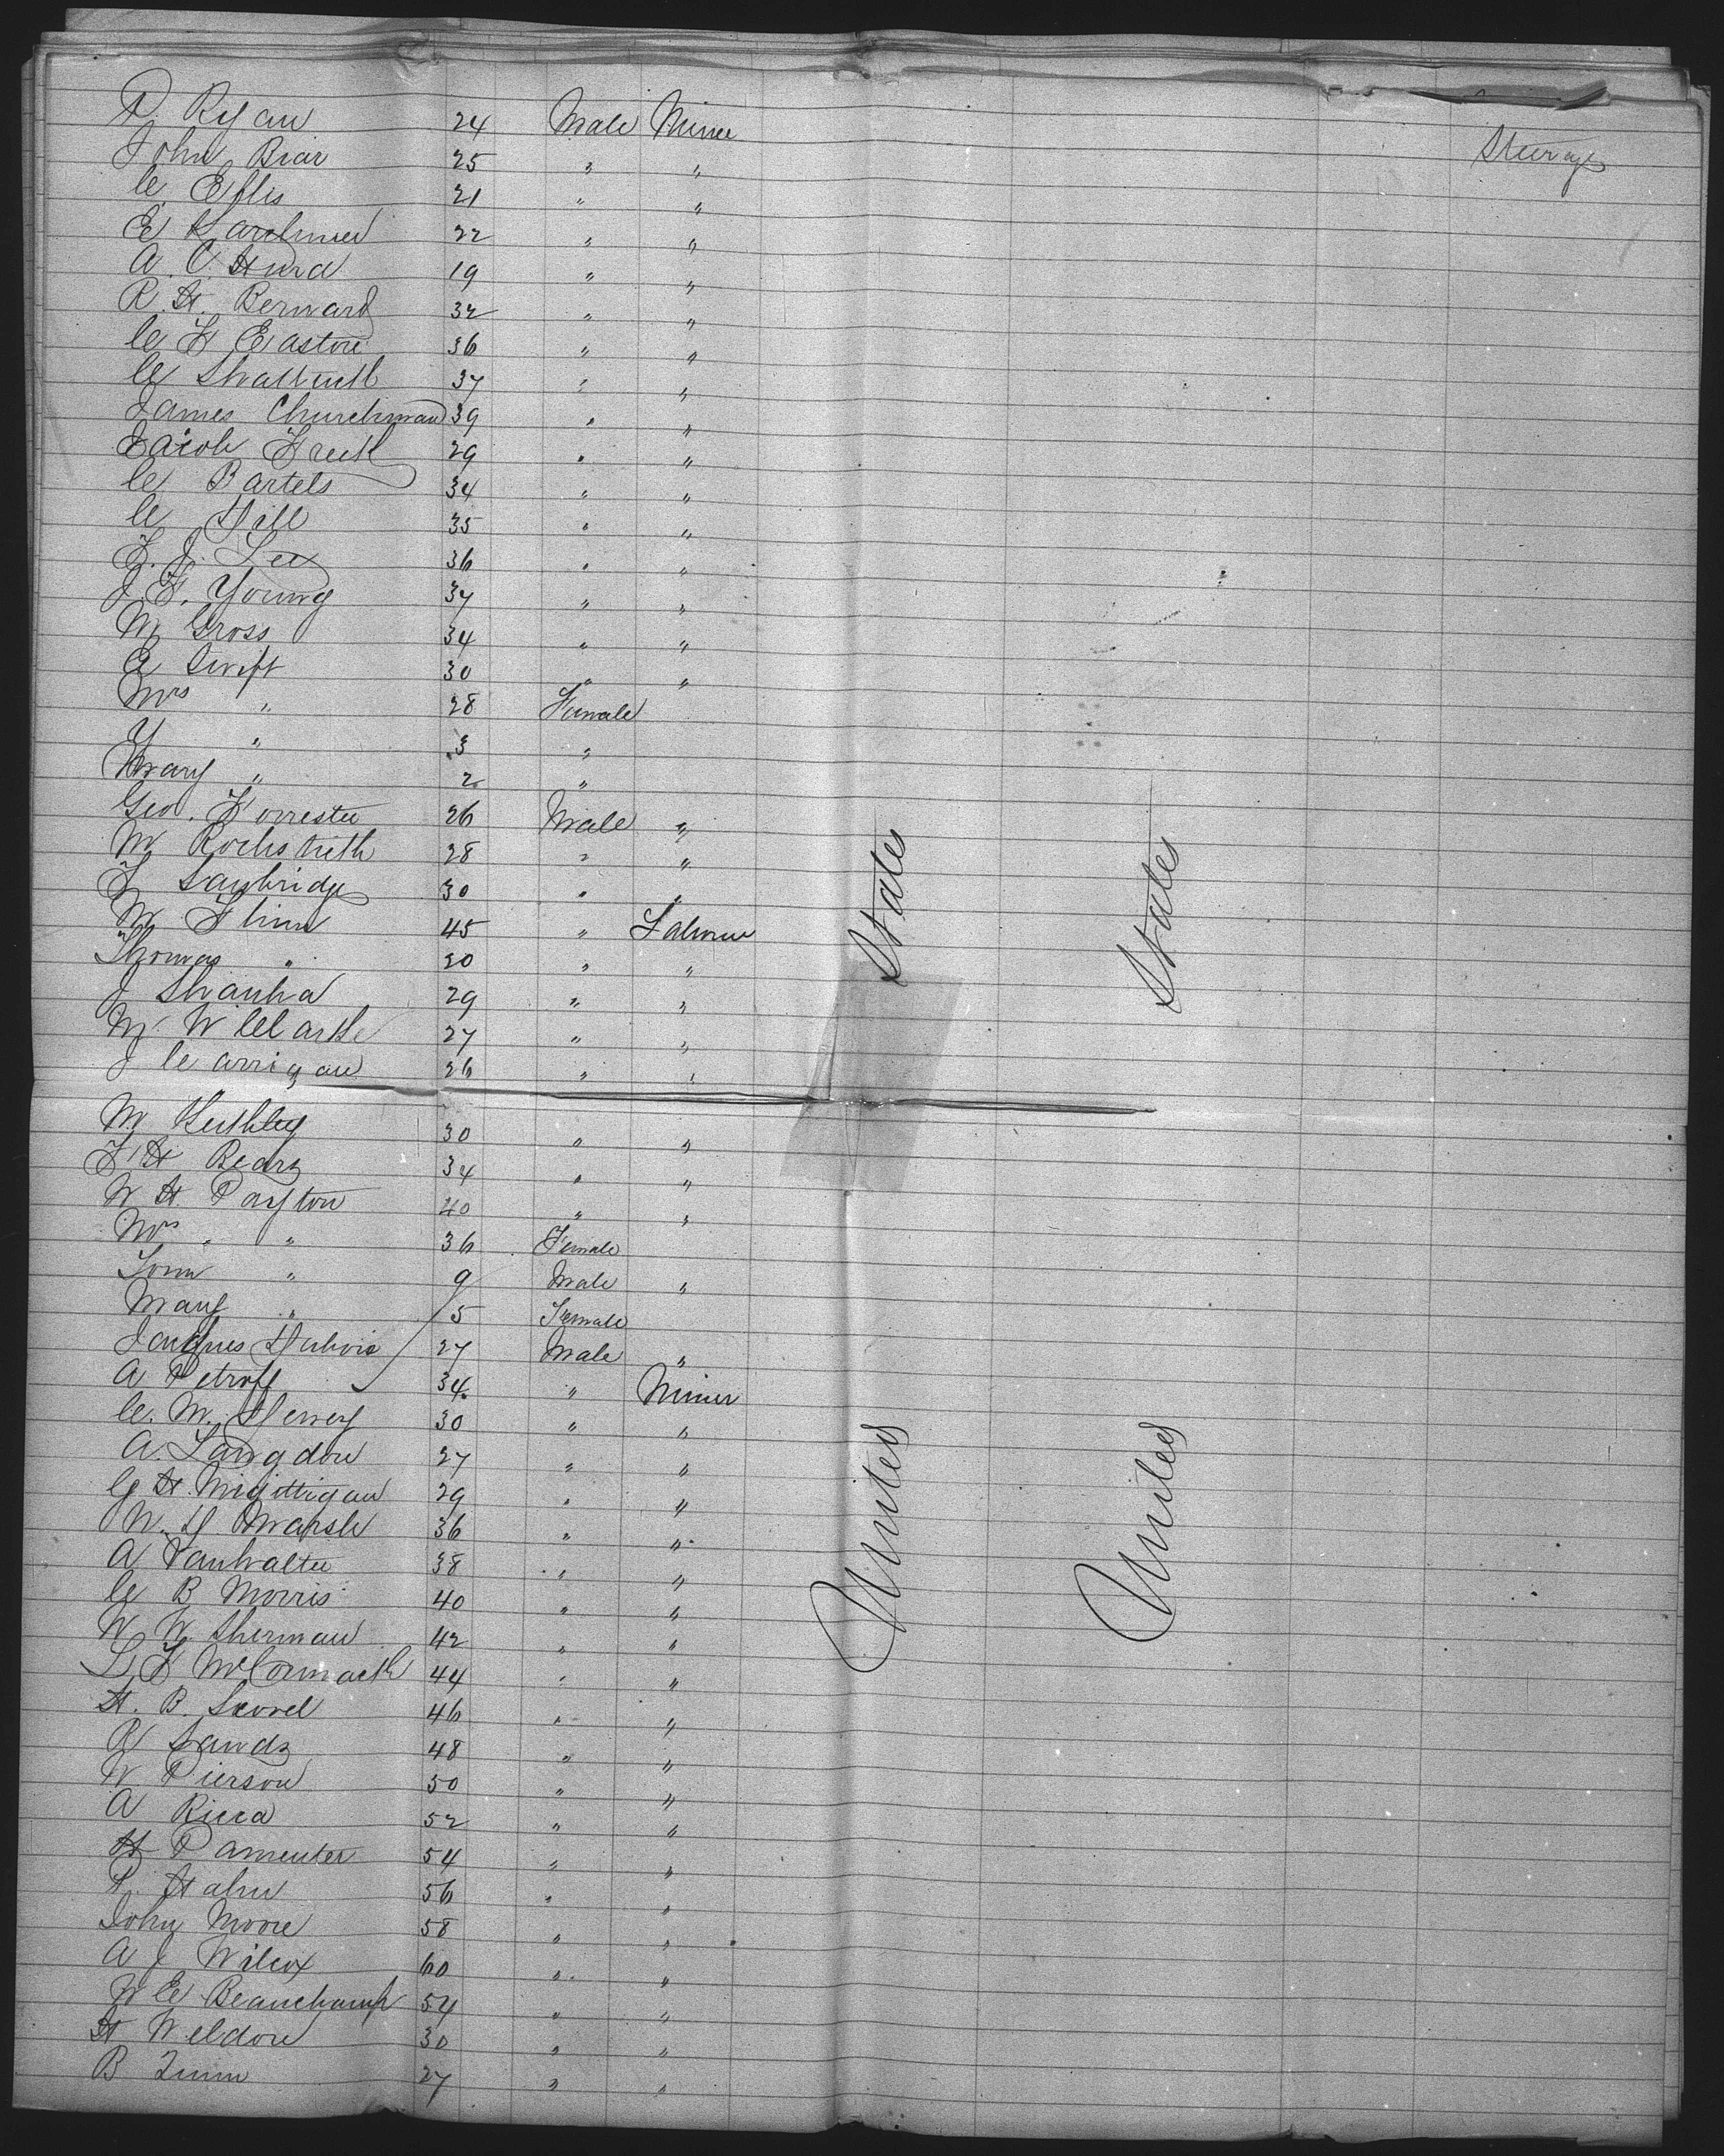 P. Ryan 24 Male Miner Steerage
John Biar 25 " "
C. Ellis 21 " "
E 22 " "
A. C. Hurd 19 " "
R. H. Bernard 32 " "
C F Easton 36 " "
C Shattuck 37 " "
James Churchman 39 " "
Jacob 29 " "
C Bartels 34 " "
C Hill 35 " "
F. J. Lee 36 " "
J. F. Young 37 " "
M Gross 34 " "
A Swift 30 " "
Mrs " 28 Female
Y " 3 "
Mary " 2 "
Geo. Forrester 26 Male "
M 28 " "
F Saybridge 30 " "
M Flinn 45 " Laborer
Thomas " 20 " "
J 29 " "
M. W 27 " "
J Carrigan 26 " "
M. Keithley 30 " "
F H Beary 34 " "
W H. Payton 40 " "
Mrs " " 36 Female
Tom " 9 Male "
Mary " 5 Female
Jacques Dubois 27 Male "
A Petroff 34 " Miner
C. M. Henry 30 " "
A. Langdon 27 " "
G H. 29 " "
W. H. Marsh 36 " "
A Vanwalter 38 " "
C B Morris 40 " "
W W. Sherman 42 " "
L F McCormack 44 " "
H. B. Scovel 46 " "
R Sands 48 " "
W. Pierson 50 " "
A Ricca 52 " "
H Parmenter 54 " "
P. Hahn 56 " "
John Moore 58 " "
A J Wilcox 60 " "
W C Beauchamp 54 " "
H Weldon 30 " "
B Quinn 27 " "
United States
United States